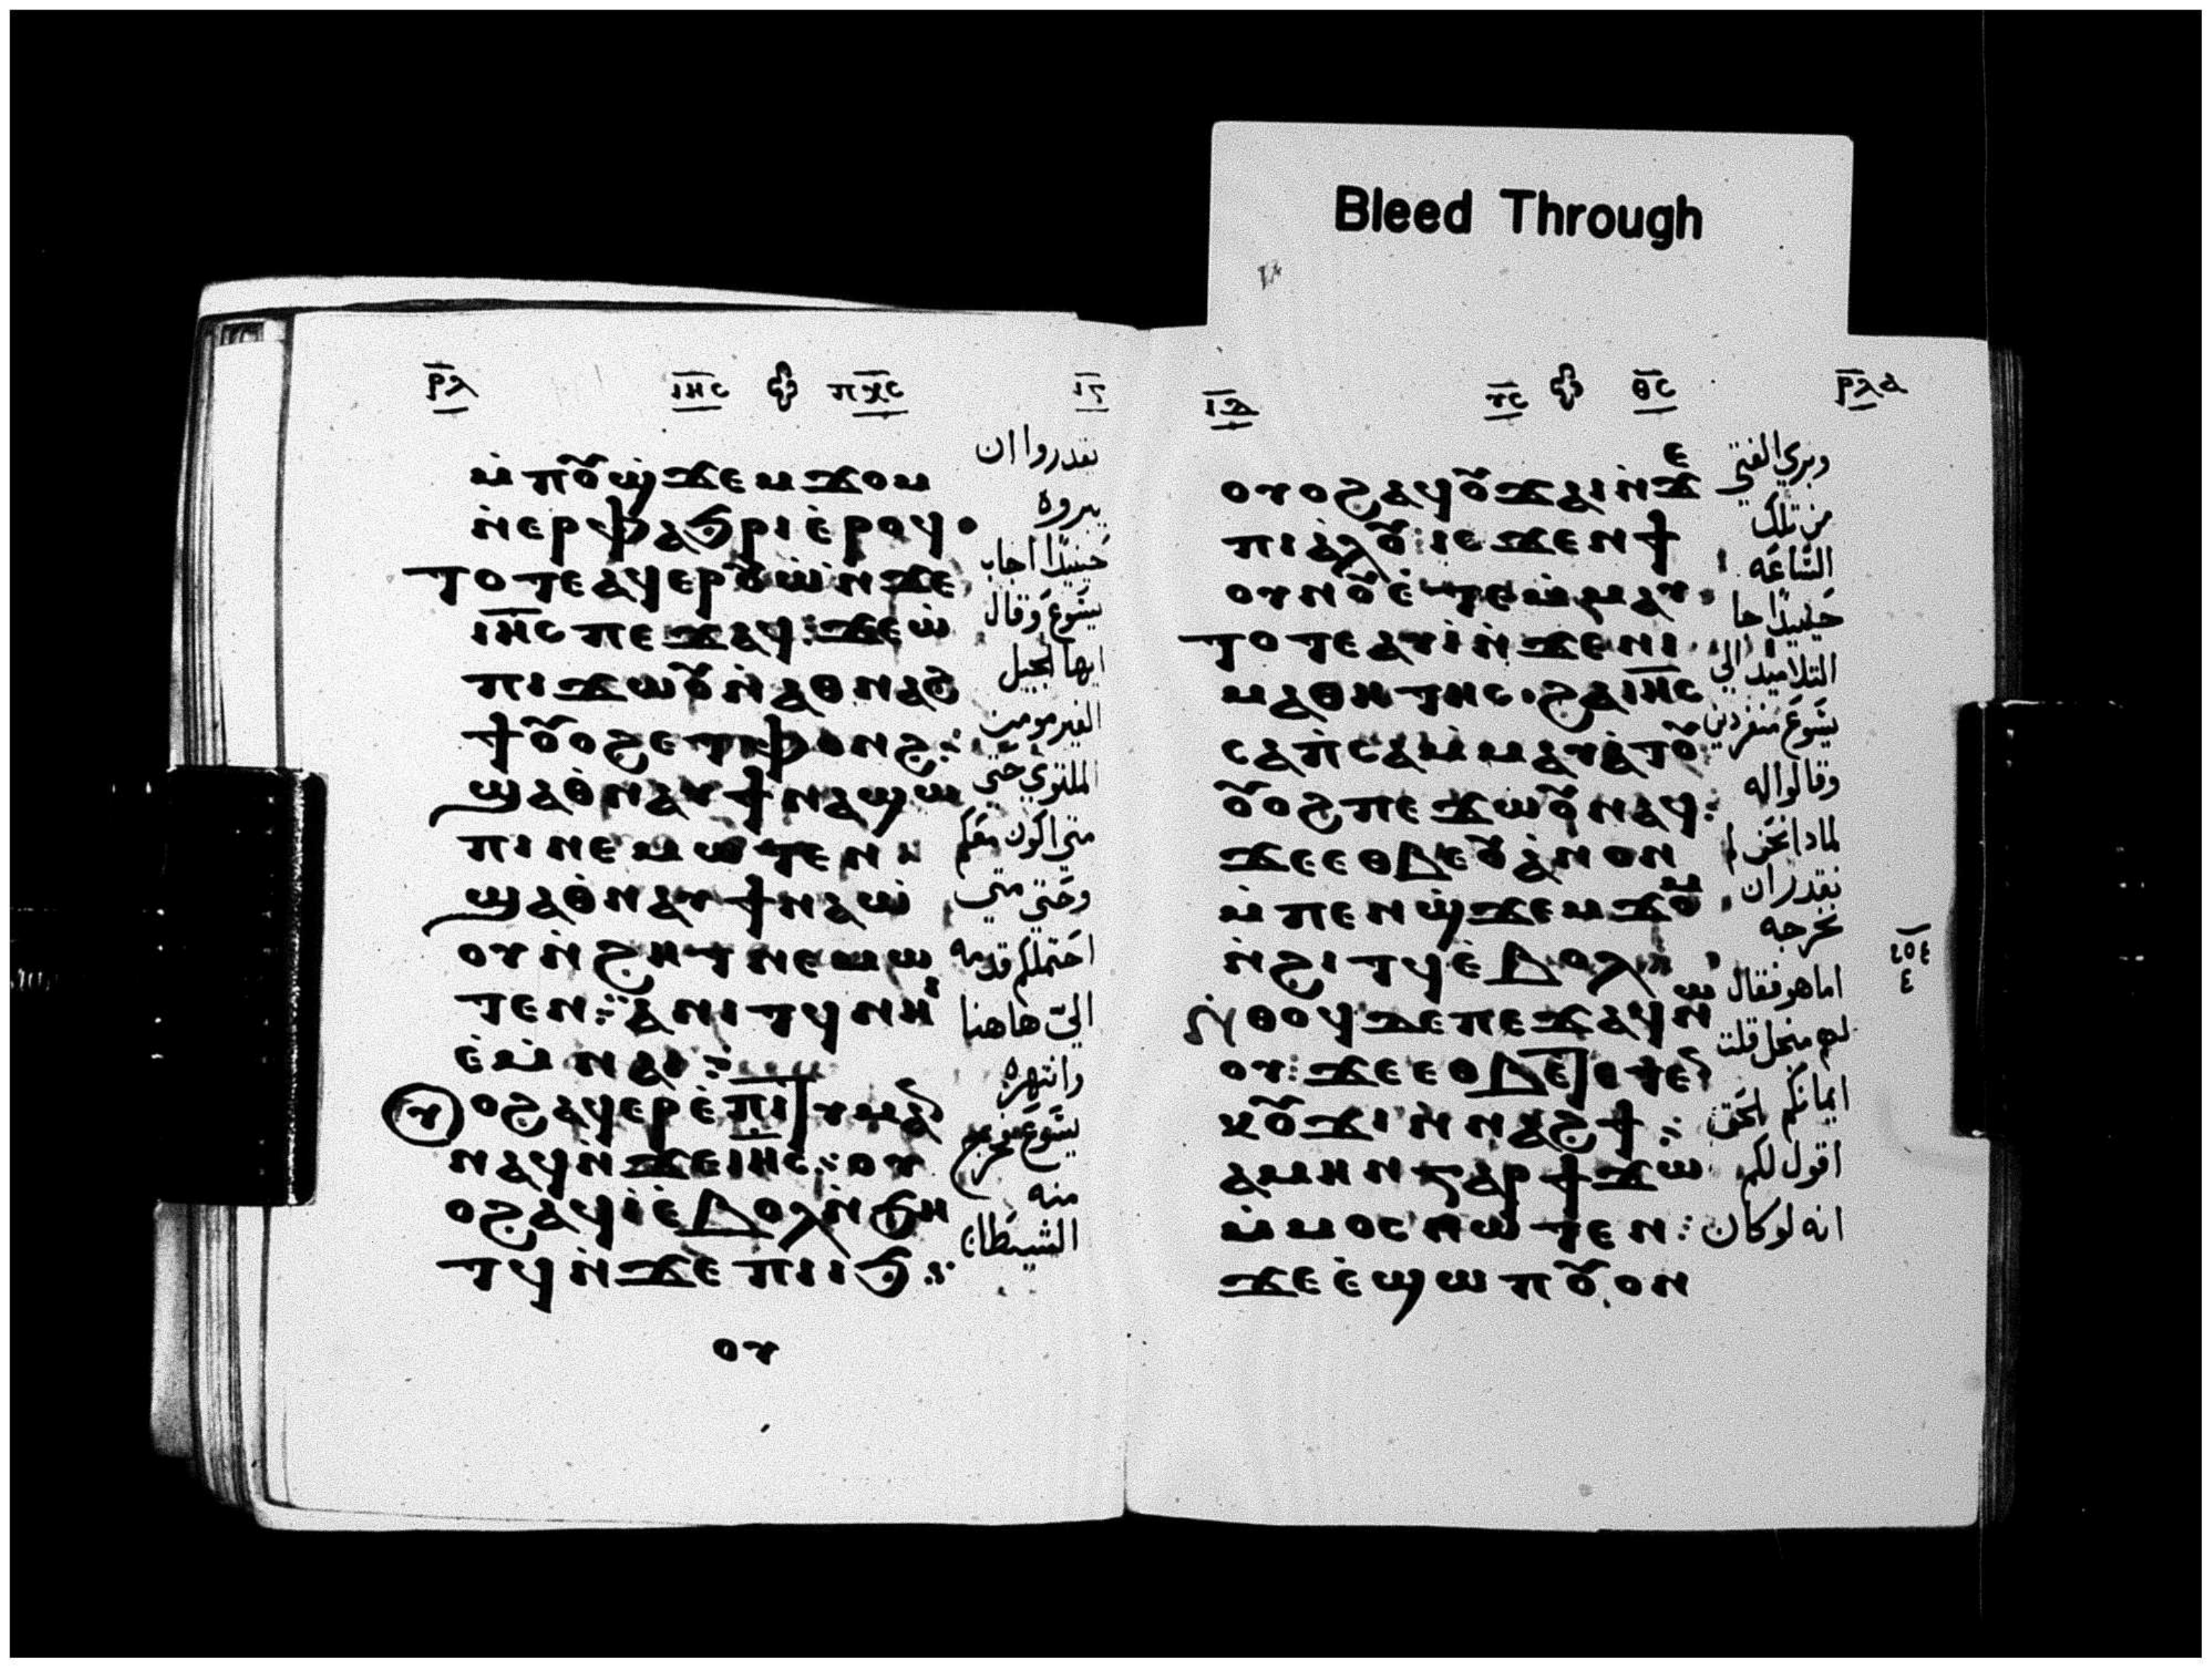 ⲣ̅ⲗ̅ ⲓⲏ̅ⲥ ⲡⲭ̅ⲥ ⲓ̅ⲅ̅
ⲙ̀ⲡⲟⲩϣ̀ϫⲉⲙϫⲟⲙ
ⲛ̀ⲉⲣⲫⲁϧⲣⲓ ⲉ̀ⲣⲟϥ ⲟ
ⲧⲟⲧⲉ ⲁϥⲉⲣⲟⲩⲱ̀ ⲛ̀ϫⲉ
ⲓⲏ̅ⲥ ⲡⲉϫⲁϥ : ϫⲉ ⲱ̀
ⲡⲓϫⲱⲟⲩ ⲛ̀ⲁⲑⲛⲁϩ
ϯ ⲟⲩⲟϩ ⲉⲧⲫⲟⲛϩ :
ϣⲁ ⲑ̀ⲛⲁⲩ ϯⲛⲁϣⲱ
ⲡⲓ ⲛⲉⲙⲱⲧⲉⲛ :
ϣⲁ ⲑ̀ⲛⲁⲩ ϯⲛⲁⲱ̀
ⲟⲩ ⲛ̀ϩⲏⲧ ⲛⲉⲙⲱ
ⲧⲉⲛ : ⲁⲛⲓⲧϥ ⲛⲏⲓ
ⲉ̀ⲙ̀ⲛⲁⲓ :
ⲩ ⲟϩ ⲁϥⲉⲣⲉ̀ⲡⲓⲧⲩⲙⲁ
ⲛⲁϥ ⲛ̀ϫⲉ ⲓⲏ̅ⲥ : ⲟⲩ
ⲟϩ ⲁϥⲓ̀ ⲉ̀ⲃⲟⲗ ⲛ̀ϧⲏ
ⲧϥ ⲛ̀ϫⲉ ⲡⲓⲓϧ :
ⲟⲩ
يقدروا ان
يبروه
حينيذا اجاب
يسوع وقال
ايها الجيل
الغير مومن
الملتوي حتي
متي اكون معكم
وحتي متي
احتملكم قدمه
اليّ هاهنا
وانتهره
يسوع فخرج
منه
الشيطان
Bleed Through
ⲓ̅ⲇ̅ ⲩ̅ⲥ ⲑ̅ⲥ ⲣ̅ⲗ̅ⲁ
ⲟⲩⲟϩ ⲁϥⲟⲩϫⲁⲓ ⲛ̀ϫⲉ
ⲡⲓⲁ̀ⲗⲟⲩ : ⲓⲥϫⲉⲛ ϯ
ⲟⲩⲛⲟⲩ ⲉ̀ⲧⲉⲙ̀ⲙⲁⲩ
ⲧⲟⲧⲉ ⲁⲩⲓ̀ ⲛ̀ϫⲉ ⲛⲓ
ⲙⲁⲑⲏⲧⲏⲥ . ϩⲁ ⲓⲏ̅ⲥ
ⲥⲁⲡ̀ⲥⲁ ⲙ̀ⲙⲁⲩⲁ̀ⲧⲟⲩ
ⲟⲩⲟϩ ⲡⲉϫⲱⲟⲩ ⲛⲁϥ :
ϫⲉ ⲉⲑⲃⲉⲟⲩ ⲁ̀ⲛⲟⲛ
ⲙ̀ⲡⲉⲛϣ̀ϫⲉⲙϫⲟⲙ
ⲛ̀ϩⲓⲧϥ ⲉ̀ⲃⲟⲗ :
ⲛ̀ⲑⲟϥ ϫⲉ ⲡⲉϫⲁϥ ⲛⲱ
ⲟⲩ : ϫⲉ ⲉⲑⲃⲉ ⲡⲉⲧⲉⲛ
ⲕⲟⲩϫⲓ ⲛ̀ⲛⲁϩϯ :
ⲁⲙⲏⲛ ⲅⲁⲣ ϯϫⲱ
ⲙ̀ⲙⲟⲥ ⲛⲱⲧⲉⲛ :
ϫⲉ ⲉ̀ϣⲱⲡ ⲟⲩⲟⲛ
وبري الفتي
من تلك
الساعه
حينيذا جا
التلاميذ الي
يسوع منفردين
وقالوا له
لماذا نحن لم
نقدر ان
نخرجه
اما هو فقال
لهم منجل قلت
ايمانكم الحق
اقول لكم
انه لو كان